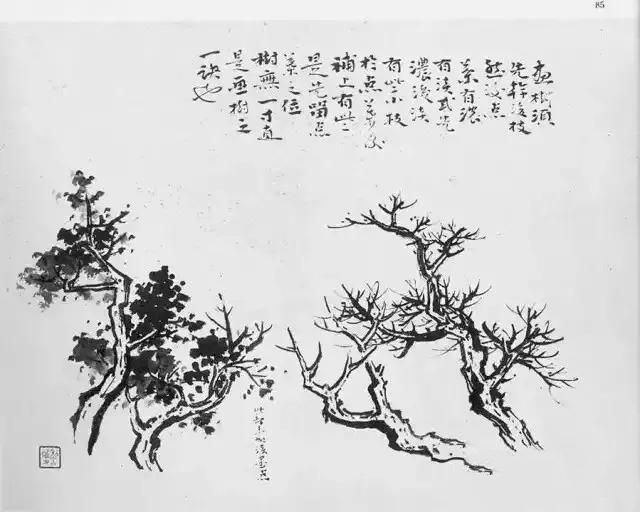 85
畫樹須
先幹後枝
然後点
葉有濃
有淡或先
濃後淡
有些小枝
於点葉後
補上有些
是先留点
葉之位
樹無一寸直
是画樹之
一訣也